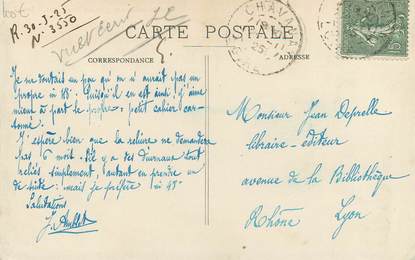 R. 30-3-25
N° 3550
vu et écrit
CARTE POSTALE
CORRESPONDANCE
ADRESSE
CHAVANAY
15
Je me doutais un peu qu'on n'aurait pas un
propre in 18°. Puisqu'il en est ainsi, j'aime
mieux à part le propre : petit cahier car-
tonné.
J'espère bien que la reliure ne demandera
pas 6 mois. S'il y a des Diurnaux tout
reliés simplement, autant en prendre un
de suite : mais je préfère in 18°.
Salutations
Monsieur Jean Deprelle
libraire-éditeur
avenue de la Bibliothèque
Lyon
Rhône